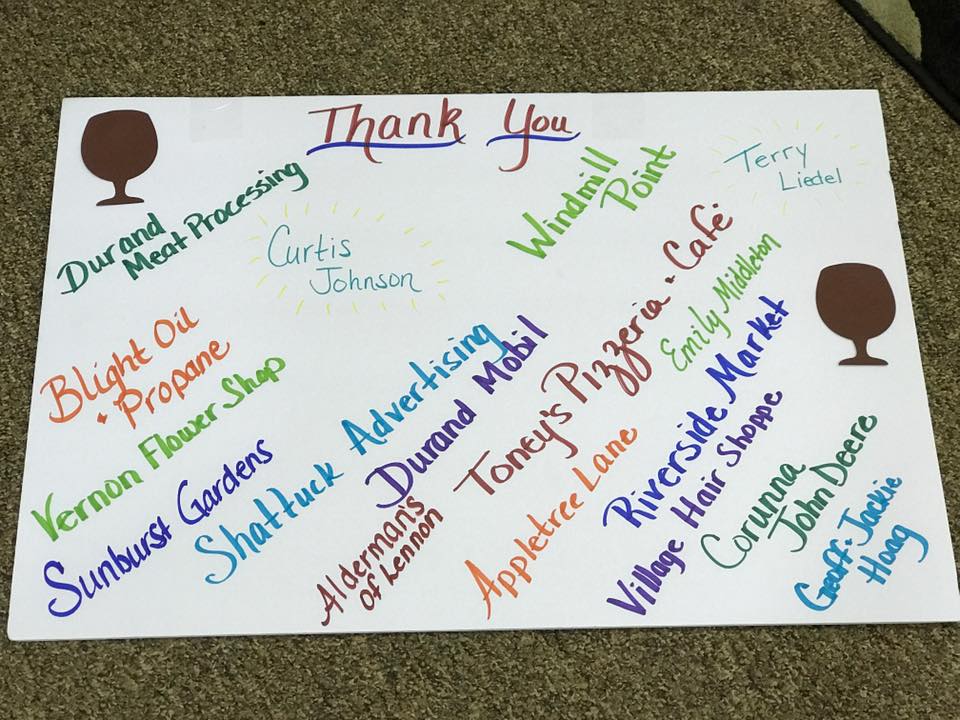 Thank You
Durand
Meat Processing
Curtis
Johnson
Windmill
Point
Terry
Liedel
Blight Oil
+ Propane
Vernon Flower Shop
Sunburst Gardens
Shattuck Advertising
Durand Mobil
Alderman's
Of Lennon
Toney's Pizzeria + Café
Emily Middleton
Appletree Lane
Riverside Market
Village Hair Shoppe
Corunna
John Deere
Geoff + Jackie
Haag